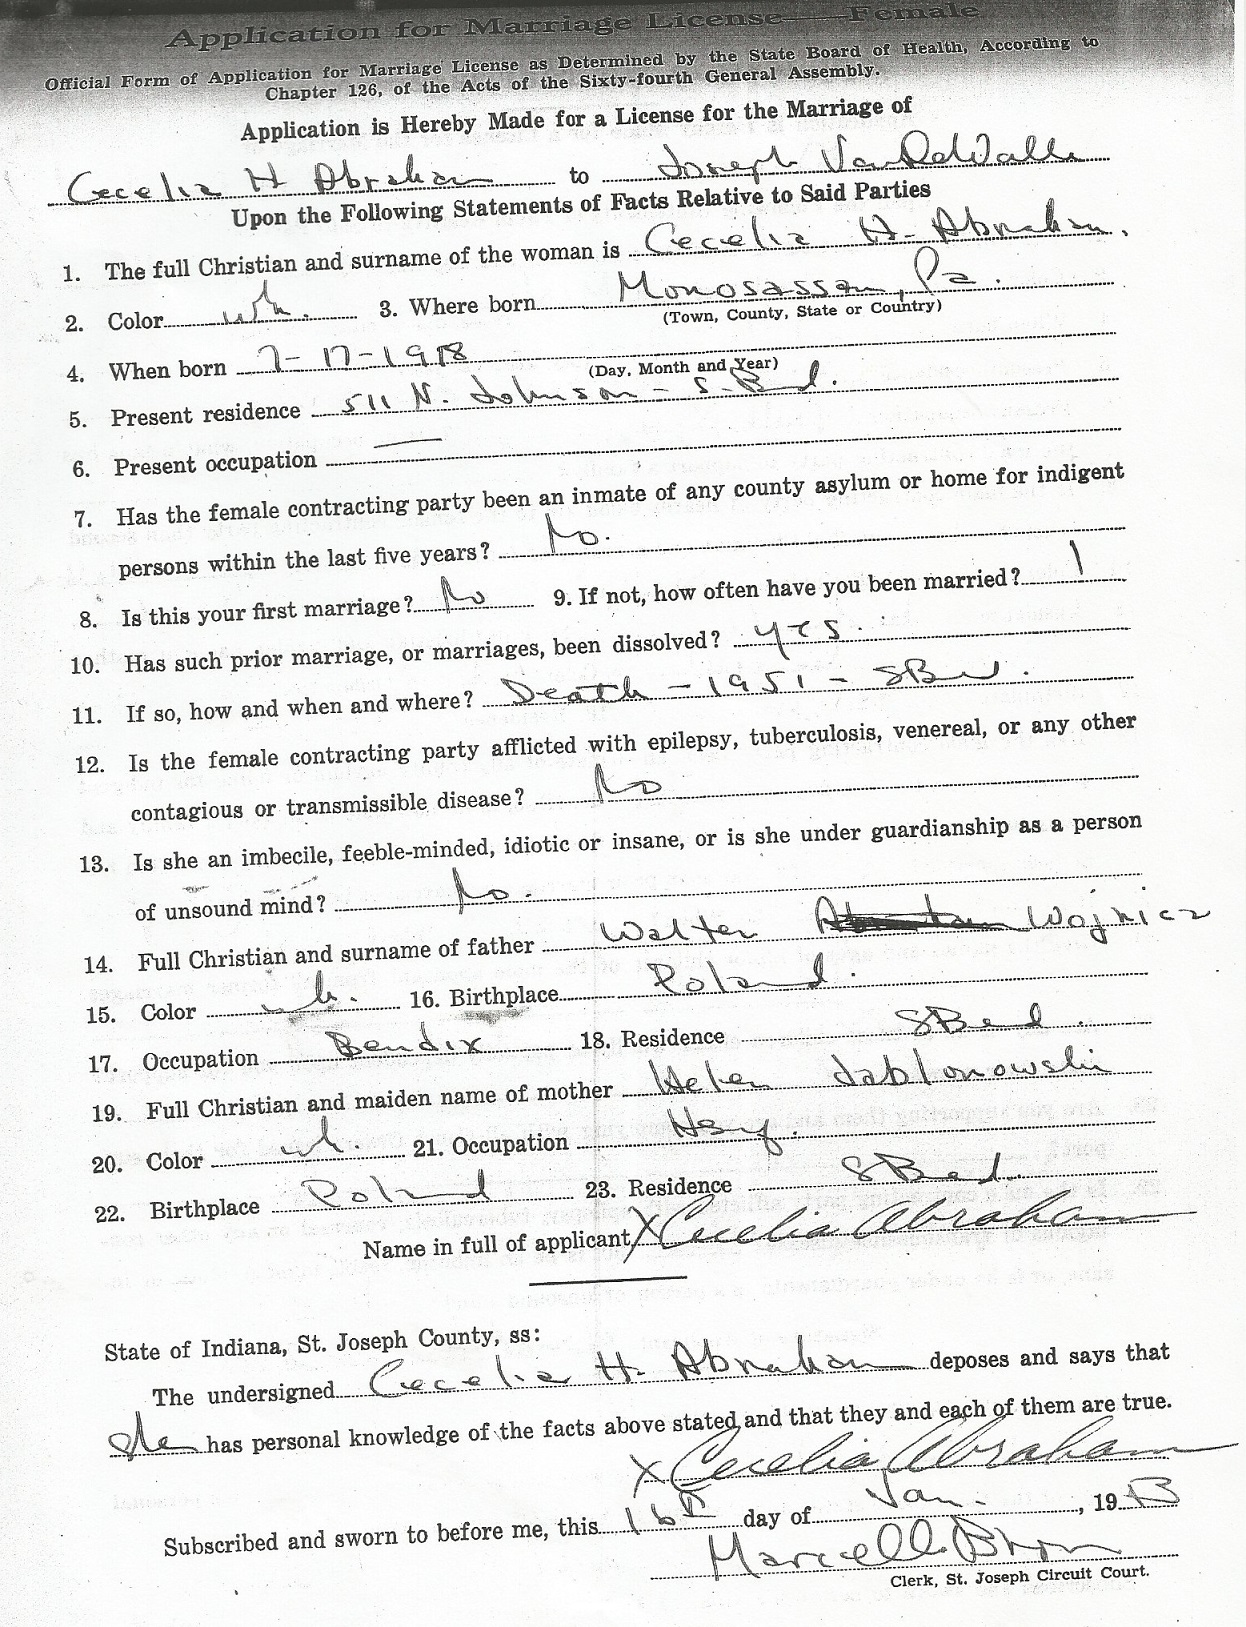 Application for Marriage License——Female
Official Form of Application for Marriage License as Determined by the State Board of Health, According to
Chapter 126, of the Acts of the Sixty-fourth General Assembly.
Application is Hereby Made for a License for the Marriage of
Cecelia H Abraham to Joseph VanDeWalle
Upon the Following Statements of Facts Relative to Said Parties
1. The full Christian and surname of the woman is Cecelia H. Abraham.
2. Color wh. 3. Where born Monosassan, Pa.
(Town, County, State or Country)
4. When born 7-17-1918
(Day, Month and Year)
5. Present residence 511 N. Johnson - S. Bend.
6. Present occupation —
7. Has the female contracting party been an inmate of any county asylum or home for indigent
persons within the last five years? No.
8. Is this your first marriage? No 9. If not, how often have you been married? 1
10. Has such prior marriage, or marriages, been dissolved? yes.
11. If so, how and when and where? Death - 1951 - SBend.
12. Is the female contracting party afflicted with epilepsy, tuberculosis, venereal, or any other
contagious or transmissible disease? No
13. Is she an imbecile, feeble-minded, idiotic or insane, or is she under guardianship as a person
of unsound mind? No.
14. Full Christian and surname of father Walter Wojnicz
15. Color wh. 16. Birthplace Poland.
17. Occupation Bendix 18. Residence SBend.
19. Full Christian and maiden name of mother Helen Jablonowski
20. Color wh. 21. Occupation
22. Birthplace Poland 23. Residence SBend.
Name in full of applicant X Cecelia Abraham
State of Indiana, St. Joseph County, ss:
The undersigned Cecelia H. Abraham deposes and says that
she has personal knowledge of the facts above stated and that they and each of them are true.
X Cecelia Abraham
Subscribed and sworn to before me, this 16th day of Jan., 19
Clerk, St. Joseph Circuit Court.